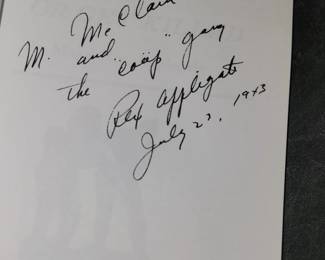 M. McClain
and
the "coup" gang
Rex Applegate
July 23, 1943